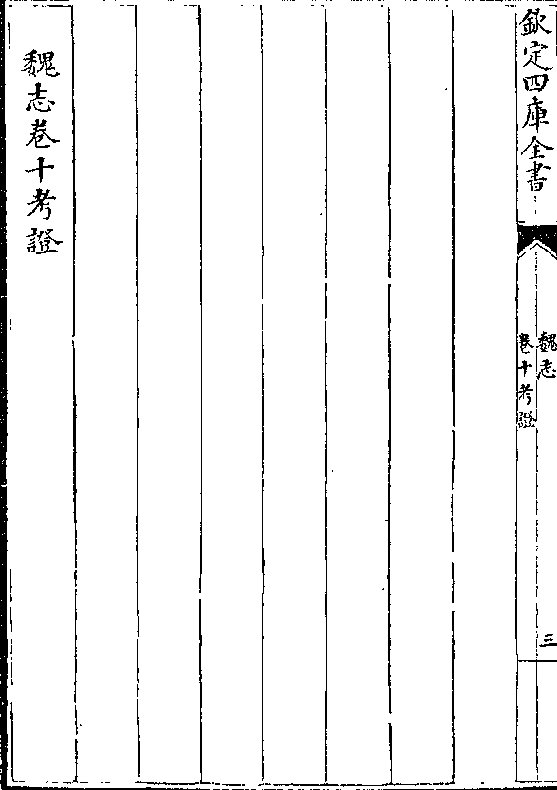 欽定四庫全書
魏志
卷十考證
三
魏志卷十考證